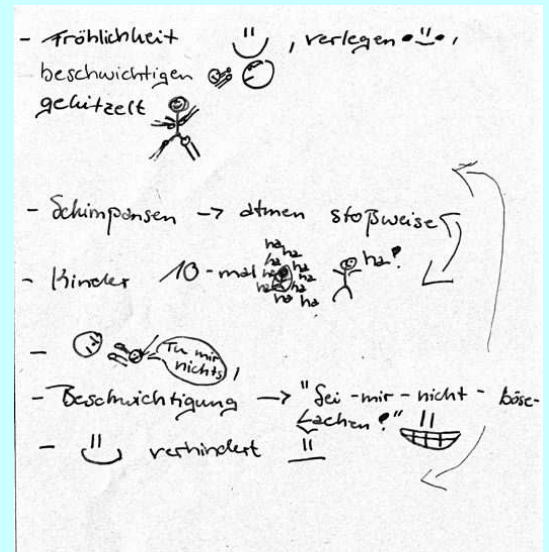 - Fröhlichkeit , verlegen ,
beschwichtigen
gekitzelt
- Schimpansen -> atmen stoßweise
- Kinder 10-mal ha ha ha ha ha ha ha ha ha ha ha!
- Tu mir
nichts,
- Beschwichtigung -> "Sei-mir-nicht-böse-
Lachen!"
- verhindert